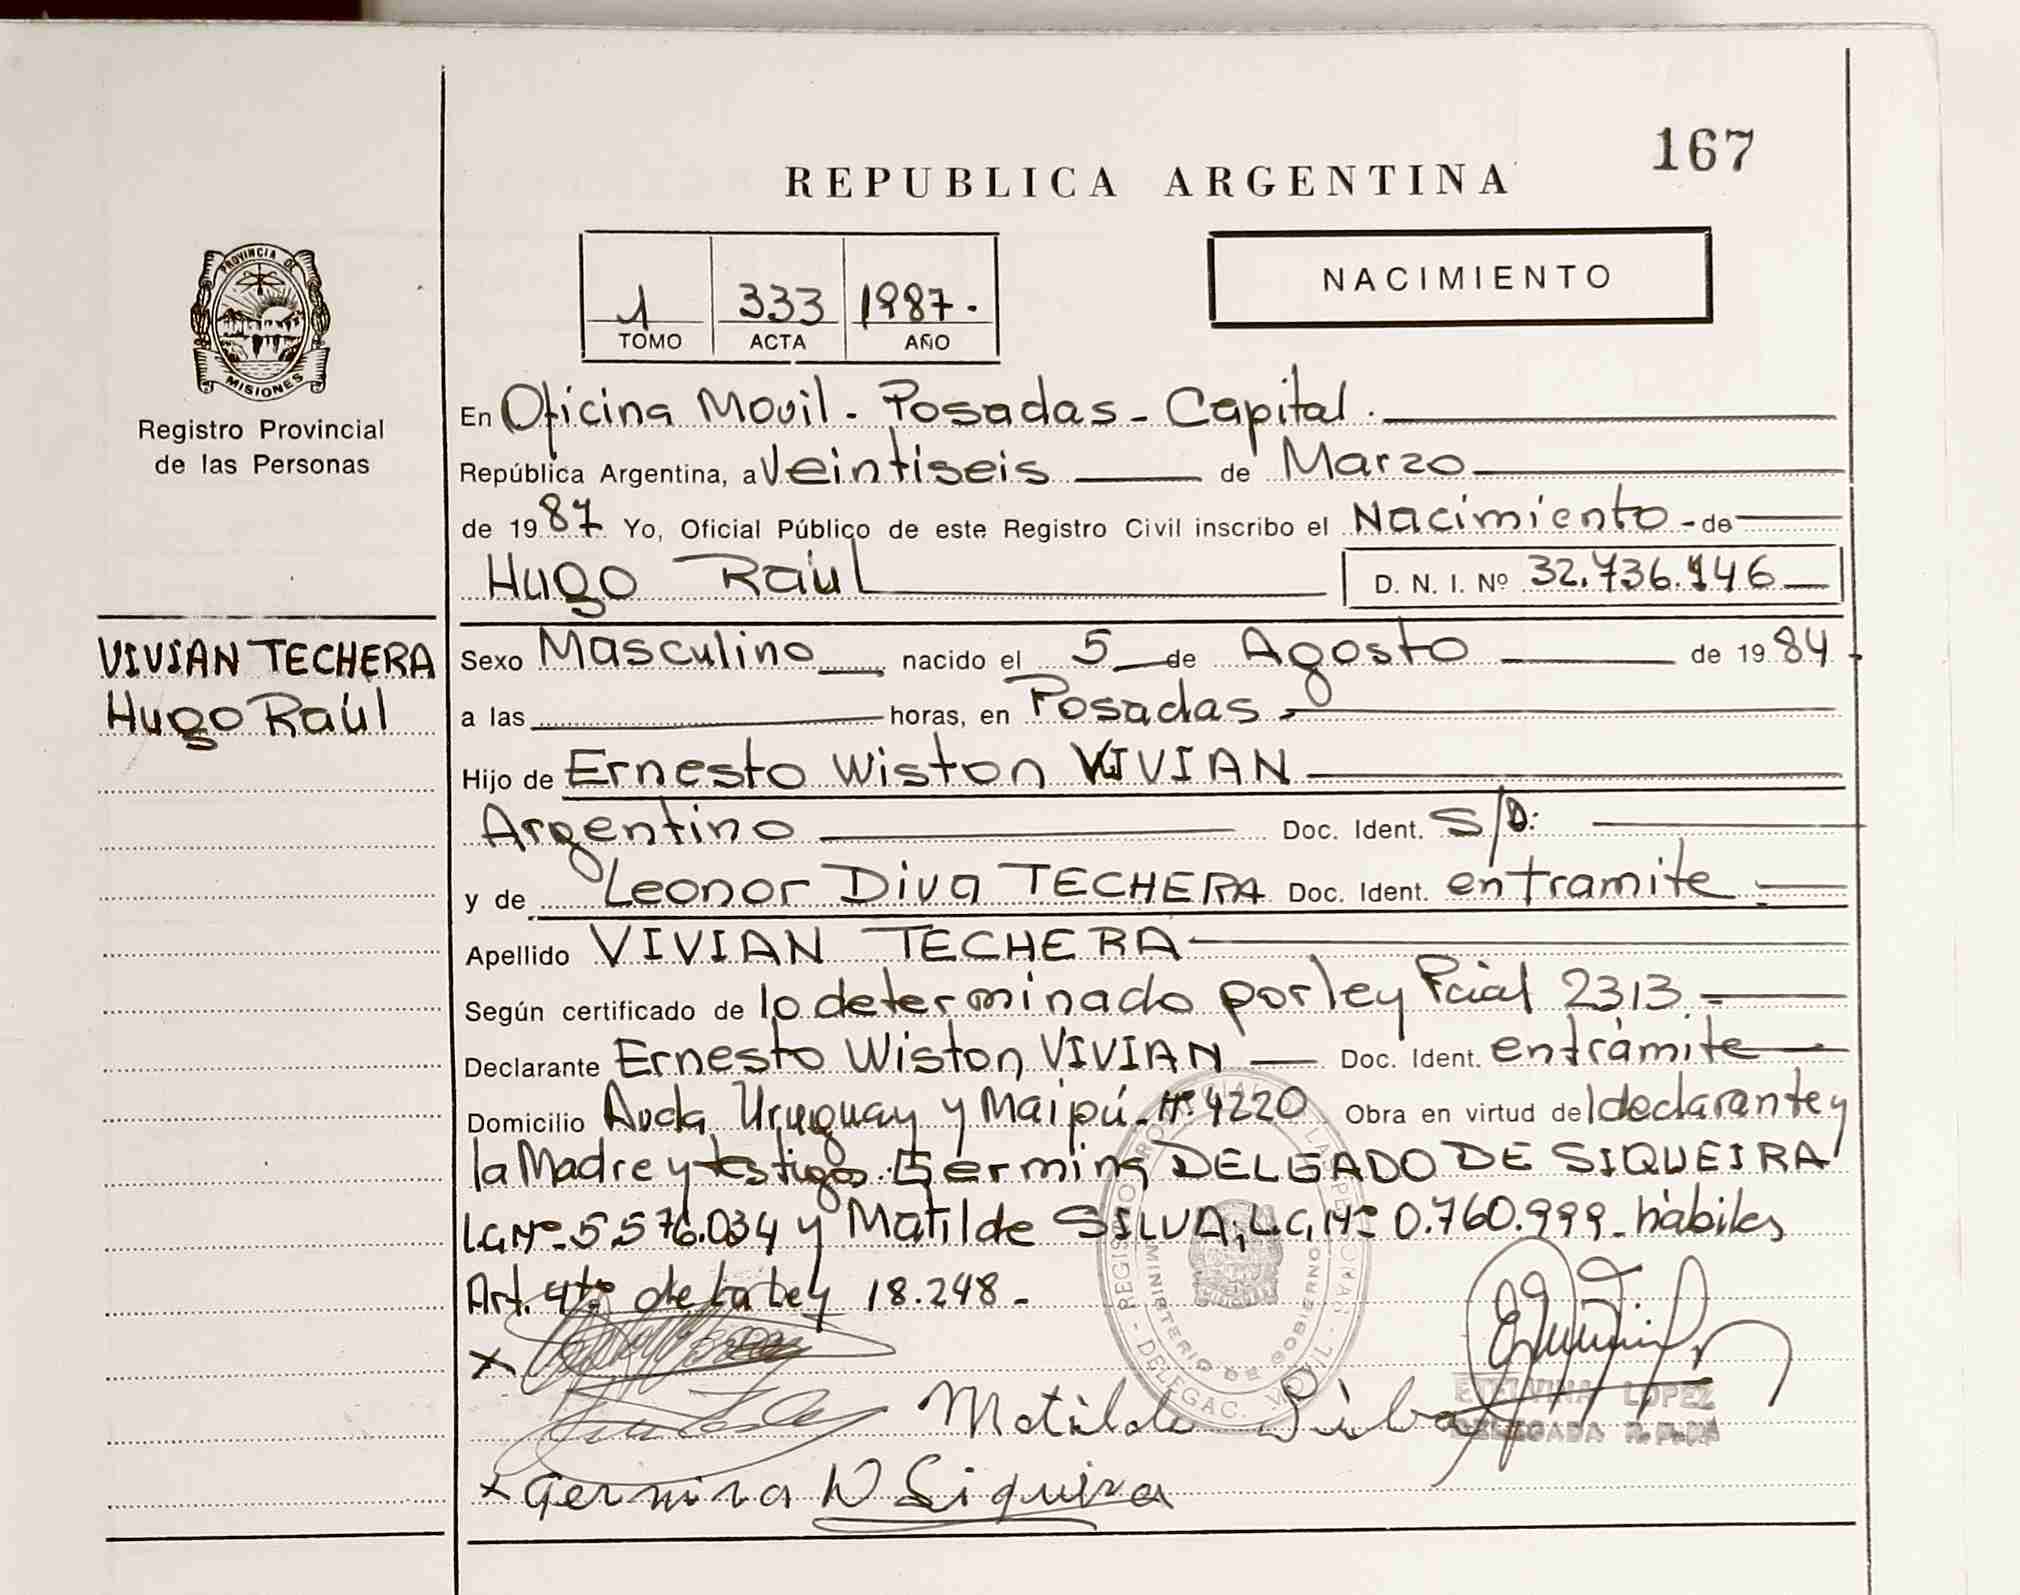 167
REPUBLICA ARGENTINA
1 333 1987.
TOMO ACTA AÑO
NACIMIENTO
PROVINCIA DE
MISIONES
Registro Provincial
de las Personas
En Oficina Movil - Posadas - Capital.
República Argentina, a Veintiseis de Marzo
de 1987 Yo, Oficial Público de este Registro Civil inscribo el Nacimiento - de
Hugo Raúl D. N. I. Nº 32.736.146
VIVIAN TECHERA
Hugo Raúl
Sexo Masculino nacido el 5 de Agosto de 1984
a las horas, en Posadas -
Hijo de Ernesto Wiston VIVIAN
Argentino Doc. Ident. S/D:
y de Leonor Diva TECHERA Doc. Ident. en tramite
Apellido VIVIAN TECHERA
Según certificado de lo determinado por ley Pcial 2313 -
Declarante Ernesto Wiston VIVIAN Doc. Ident. en trámite
Domicilio Avda Uruguay y Maipú - Nº 4220 Obra en virtud del declarante y
la Madre y testigos: Germina DELGADO DE SIQUEIRA
L.C. Nº 5576.034 y Matilde SILVA, L.C. Nº 0.760.999 - hábiles
Art. 4to de la Ley 18.248 -
x
Matilde Silva
ETELVINA LOPEZ
DELEGADA R. P. P.
x Germina D Siqueira
MINISTERIO DE GOBIERNO
DELEGAC. MOVIL